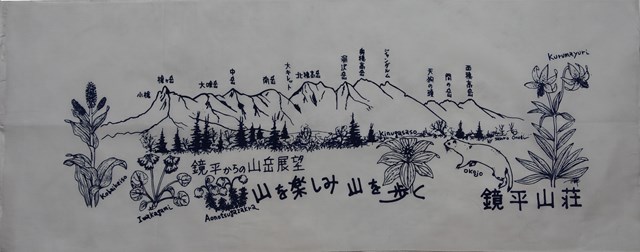 小槍
槍ヶ岳
大喰岳
中岳
南岳
大キレット
北穂高岳
涸沢岳
奥穂高岳
ジャンダルム
天狗の頭
間の岳
西穂高岳
Kurumayuri
Kobaikeiso
Iwakagami
Aonotsugazakra
Kinugasaso
Okojo
鏡平からの山岳展望
山を楽しみ 山を歩く
鏡平山荘